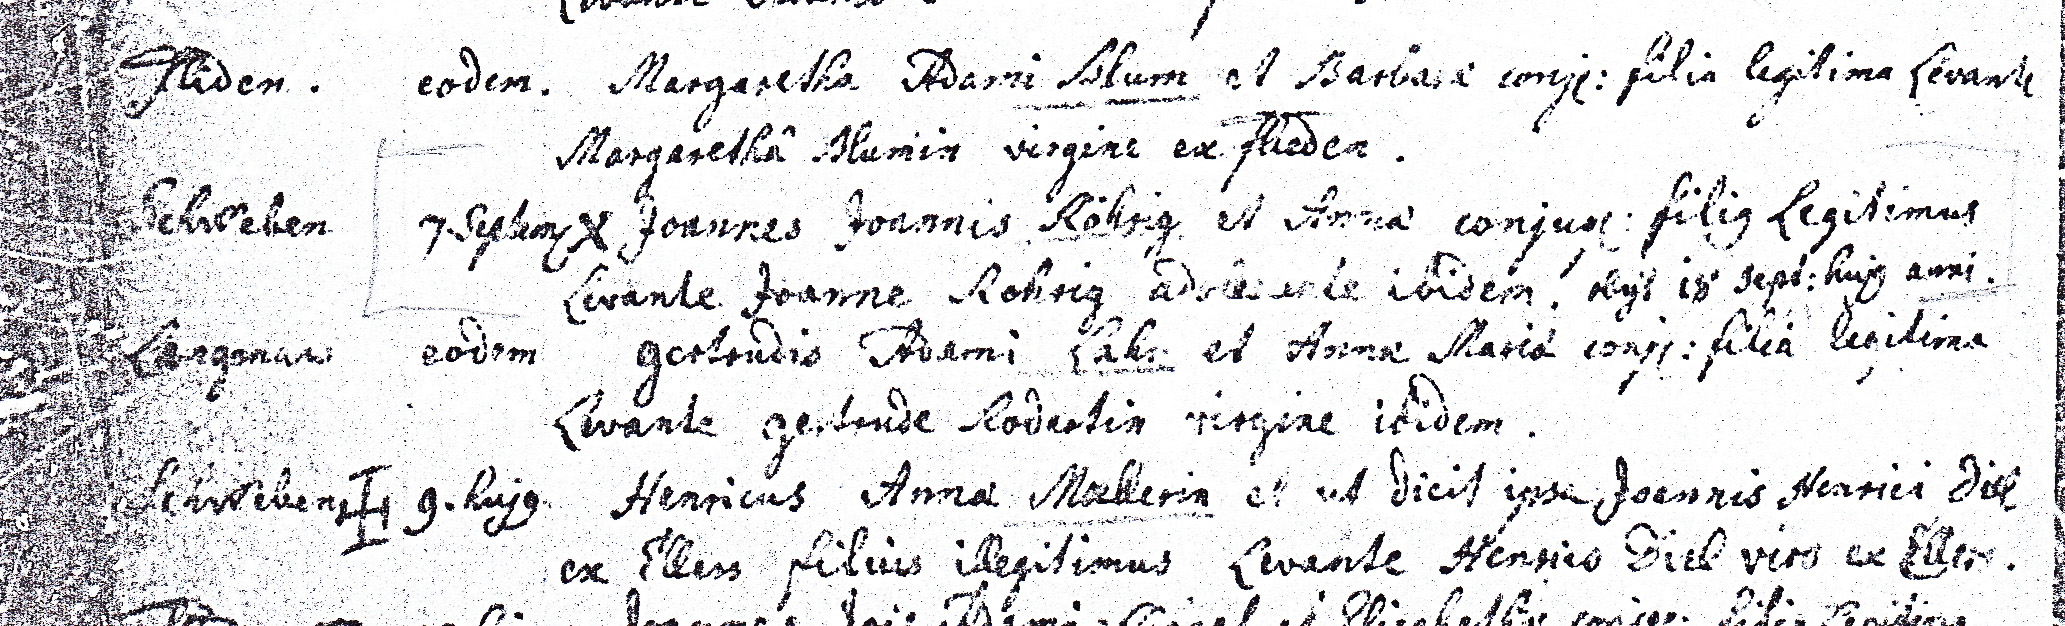 Levante
Fliden. eodem. Margaretha Adami Blum et Barbaræ conjc: filia legitima Levante
Margarethâ Blumin virgine ex flieden.
Schweben 7 Septem X Joannes Joannis Röhrig et Annæ conjuc: filig Legitimus
Levante Joanne Rohrig adolescente ibidem. obijt 18 Sept: hujg anni.
eodem gertrudis Adami Lahr et Annæ Mariæ conjc: filia legitima
Levante gertrude virgine ibidem.
Schweben 9. hujg Henricus Annæ Mællerin et ut dicit ipsa Joannis Henrici Diel
ex Ellers filius illegitimus Levante Henrico Diel viro ex Ellers.
Adami et Elisabethæ